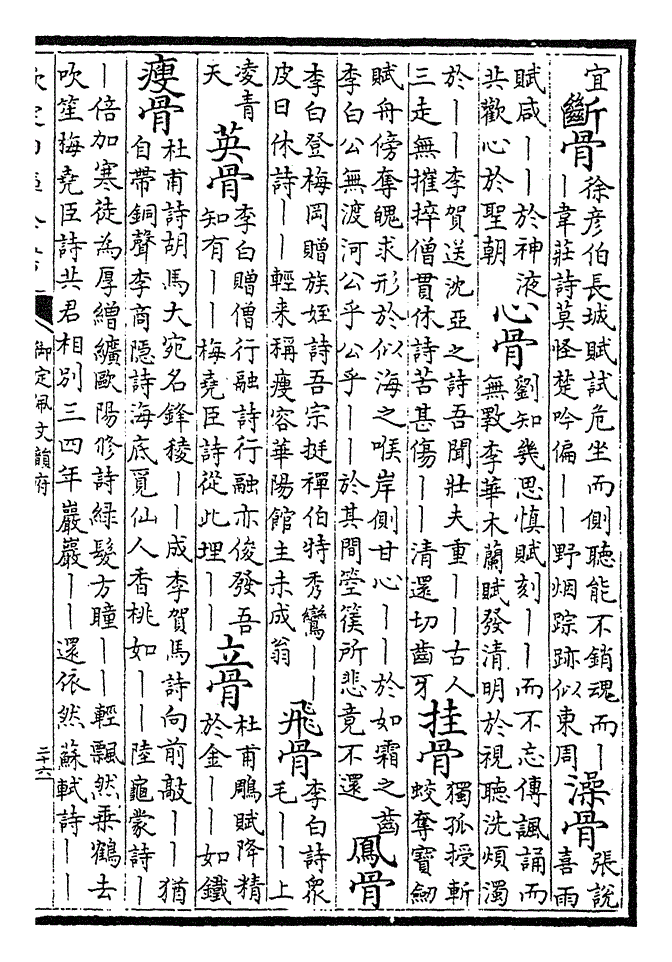 宜
斷骨
徐彥伯長城賦試危坐而側聽能不銷魂而丨
丨韋莊詩莫怪楚吟偏丨丨野烟踪跡似東周
澡骨
張說
喜雨
賦咸丨丨於神液
共歡心於聖朝
心骨
劉知幾思慎賦刻丨丨而不忘傳諷誦而
無斁李華木蘭賦發清明於視聽洗煩濁
於丨丨李賀送沈亞之詩吾聞壯夫重丨丨古人
三走無摧捽僧貫休詩苦甚傷丨丨清還切齒牙
挂骨
獨孤授斬
蛟奪寶劒
賦舟傍奪魄求形於似海之喉岸側甘心丨丨於如霜之齒
李白公無渡河公乎公乎丨丨於其間箜篌所悲竟不還
鳳骨
李白登梅岡贈族姪詩吾宗挺禪伯特秀鸞丨丨
皮日休詩丨丨輕来稱瘦容華陽館主未成翁
飛骨
李白詩衆
毛丨丨上
凌青
天
英骨
李白贈僧行融詩行融亦俊發吾
知有丨丨梅堯臣詩從此埋丨丨
立骨
杜甫鵰賦降精
於金丨丨如鐵
瘦骨
杜甫詩胡馬大宛名鋒稜丨丨成李賀馬詩向前敲丨丨猶
自帶銅聲李商隱詩海底覓仙人香桃如丨丨陸龜蒙詩丨
丨倍加寒徒為厚繒纊歐陽修詩緑髮方瞳丨丨輕飄然乗鶴去
吹笙梅堯臣詩共君相別三四年巖巖丨丨還依然蘇軾詩丨丨
御定佩文韻府
二十六